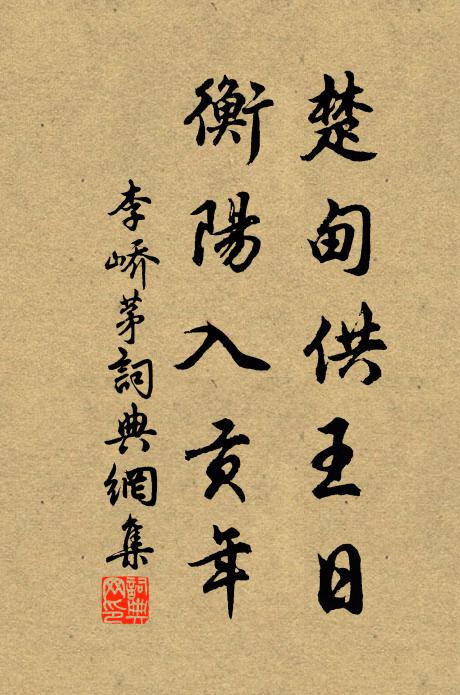 楚甸供王日
衡陽入貢年
李嶠茅詞典網集
詞典網印